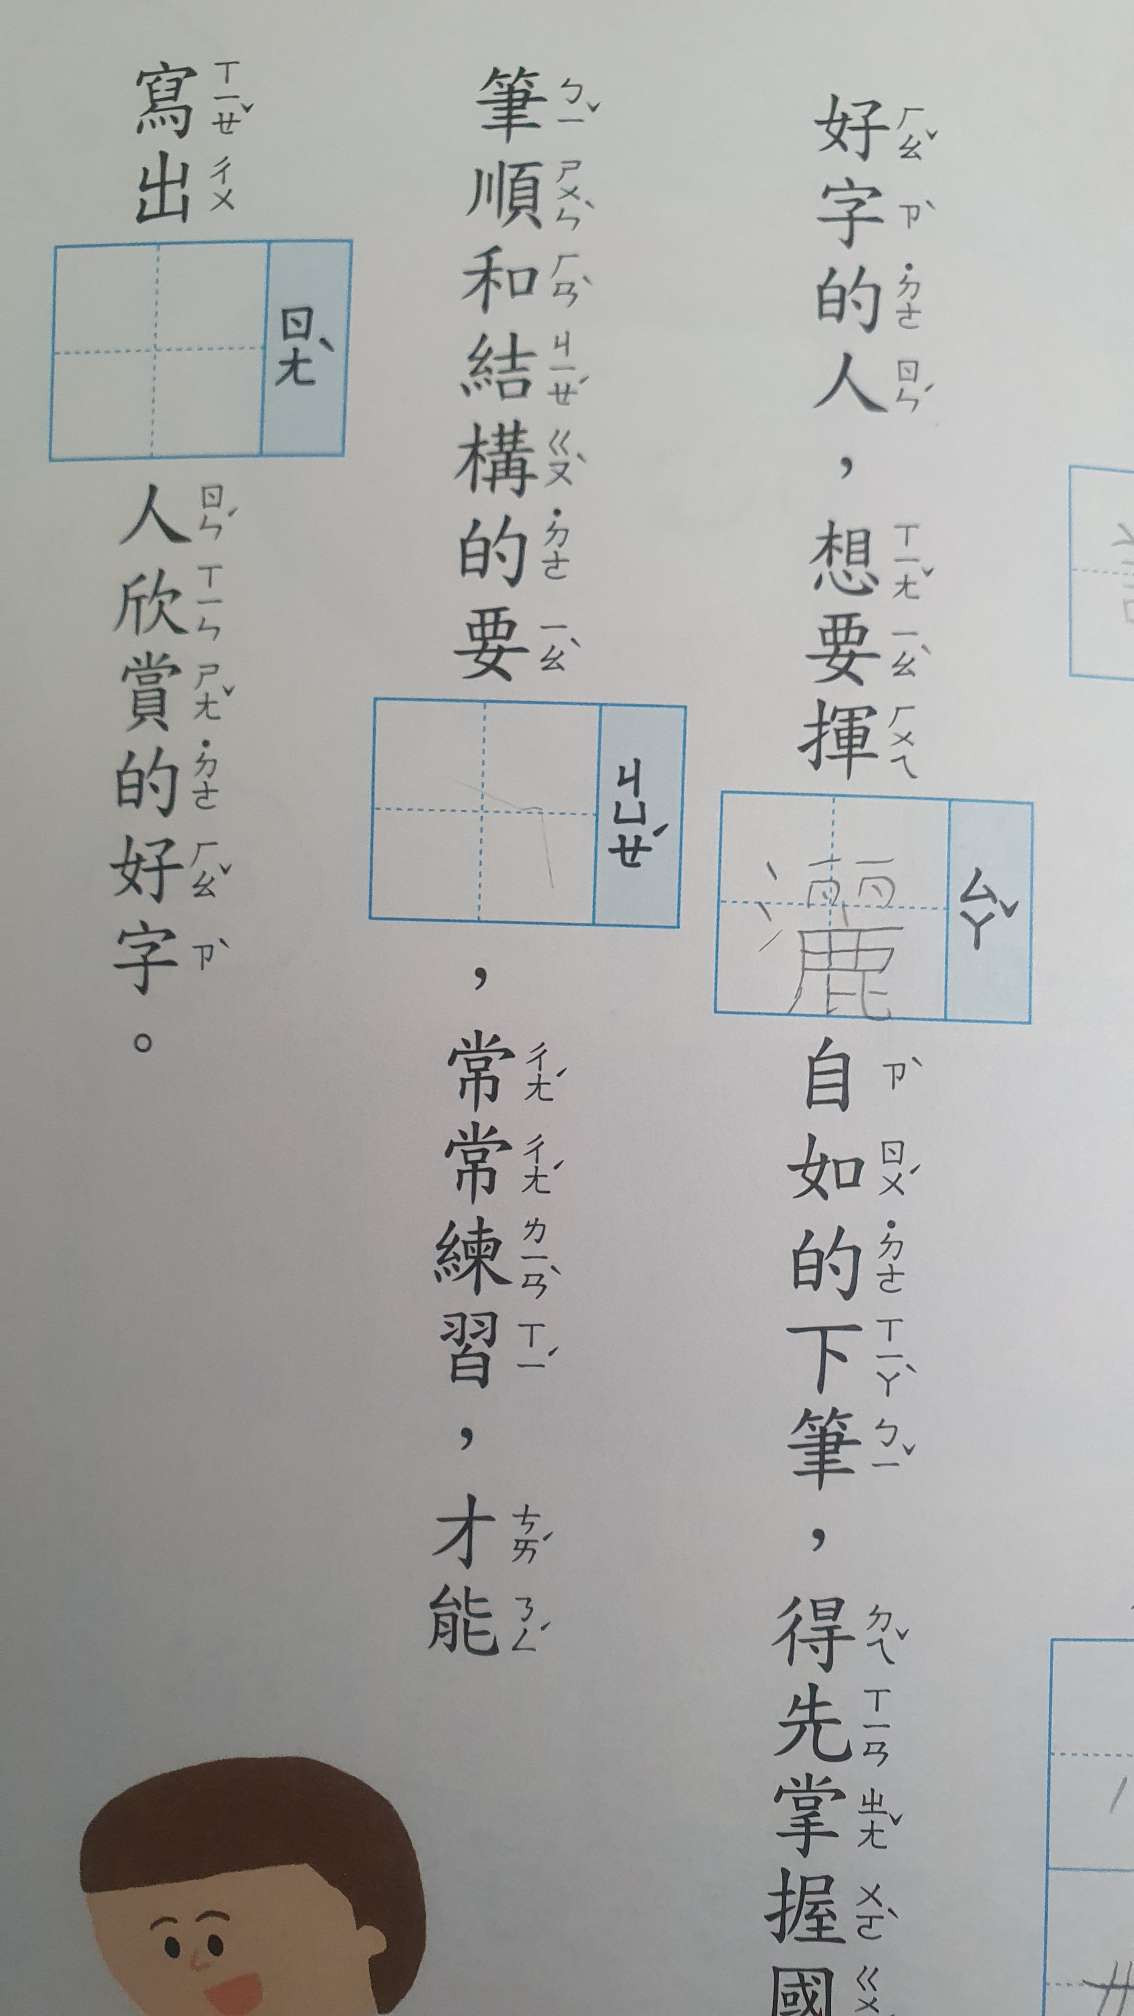 好字的人，想要揮灑自如的下筆，得先掌握國
筆順和結構的要ㄐㄩㄝˊ，常常練習，才能
寫出ㄖㄤˋ人欣賞的好字。